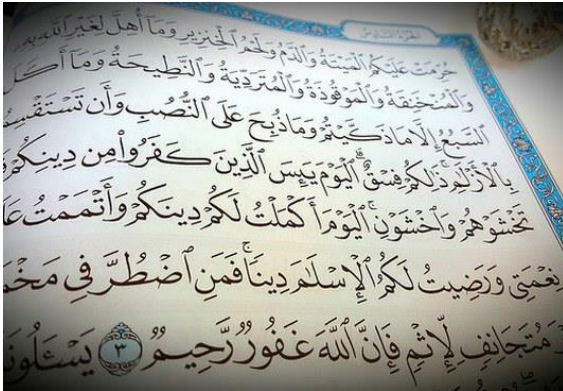 الجزء السادس
حُرِّمَتْ عَلَيْكُمُ ٱلْمَيْتَةُ وَٱلدَّمُ وَلَحْمُ ٱلْخِنزِيرِ وَمَآ أُهِلَّ لِغَيْرِ ٱللَّهِ بِهِۦ
وَٱلْمُنْخَنِقَةُ وَٱلْمَوْقُوذَةُ وَٱلْمُتَرَدِّيَةُ وَٱلنَّطِيحَةُ وَمَآ أَكَلَ
ٱلسَّبُعُ إِلَّا مَا ذَكَّيْتُمْ وَمَا ذُبِحَ عَلَى ٱلنُّصُبِ وَأَن تَسْتَقْسِمُ
بِٱلْأَزْلَٰمِ ۚ ذَٰلِكُمْ فِسْقٌ ۗ ٱلْيَوْمَ يَئِسَ ٱلَّذِينَ كَفَرُوا۟ مِن دِينِكُمْ
تَخْشَوْهُمْ وَٱخْشَوْنِ ۚ ٱلْيَوْمَ أَكْمَلْتُ لَكُمْ دِينَكُمْ وَأَتْمَمْتُ عَلَ
نِعْمَتِى وَرَضِيتُ لَكُمُ ٱلْإِسْلَٰمَ دِينًا ۚ فَمَنِ ٱضْطُرَّ فِى مَخْمَ
مُتَجَانِفٍ لِّإِثْمٍ ۙ فَإِنَّ ٱللَّهَ غَفُورٌ رَّحِيمٌ ٣ يَسْـَٔلُونَ